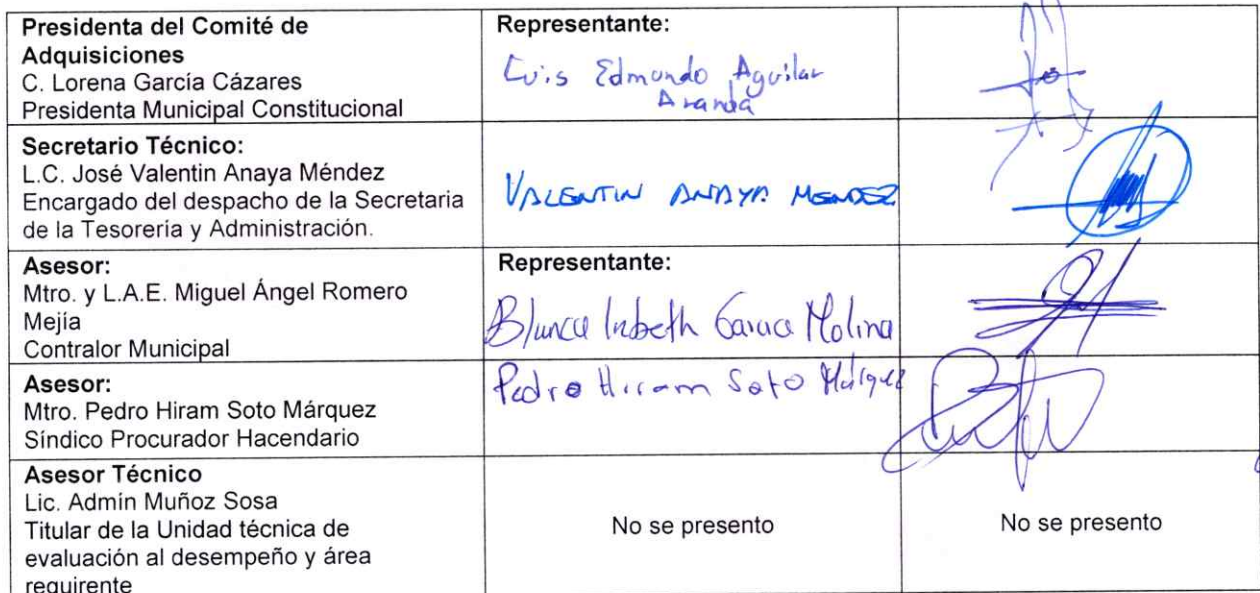 Presidenta del Comité de
Adquisiciones
C. Lorena García Cázares
Presidenta Municipal Constitucional
Representante:
Luis Edmundo Aguilar
Aranda
Secretario Técnico:
L.C. José Valentin Anaya Méndez
Encargado del despacho de la Secretaria
de la Tesorería y Administración.
VALENTIN ANAYA MENDEZ
Asesor:
Mtro. y L.A.E. Miguel Ángel Romero
Mejía
Contralor Municipal
Representante:
Blanca Garcia Molina
Asesor:
Mtro. Pedro Hiram Soto Márquez
Síndico Procurador Hacendario
Pedro Hiram Soto Márquez
Asesor Técnico
Lic. Admín Muñoz Sosa
Titular de la Unidad técnica de
evaluación al desempeño y área
requirente
No se presento
No se presento